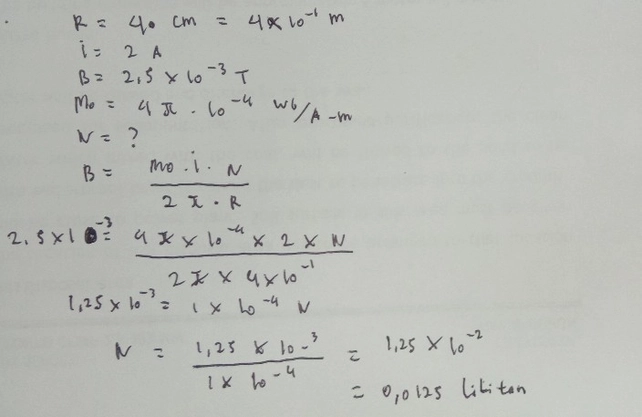 R = 40 cm = 4x10⁻¹ m
i = 2 A
B = 2,5 x 10⁻³ T
Mo = 4π . 10⁻⁴ Wb/A-m
N = ?
B = mo . i . N / 2 π . R
2,5x10⁻³ = 4πx10⁻⁴ x 2 x N / 2π x 4x10⁻¹
1,25 x 10⁻³ = 1 x 10⁻⁴ N
N = 1,25 x 10⁻³ / 1x 10⁻⁴ = 1,25 x 10⁻²
= 0,0125 lilitan